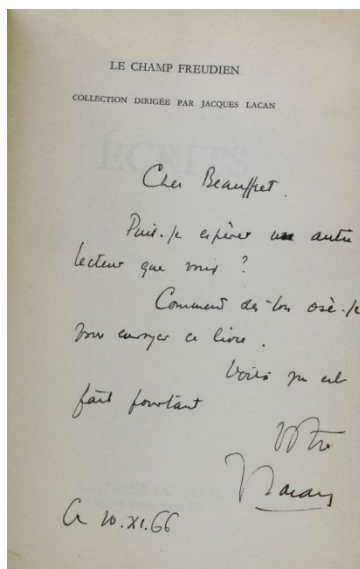 LE CHAMP FREUDIEN
COLLECTION DIRIGÉE PAR JACQUES LACAN
ÉCRITS
Cher Beauffret.
Puis-je espérer un autre
lecteur que vous ?
Comment dès lors osè-je
vous envoyer ce livre.
Voilà qui est
fait pourtant
Votre
JLacan
Ce 20.XI.66